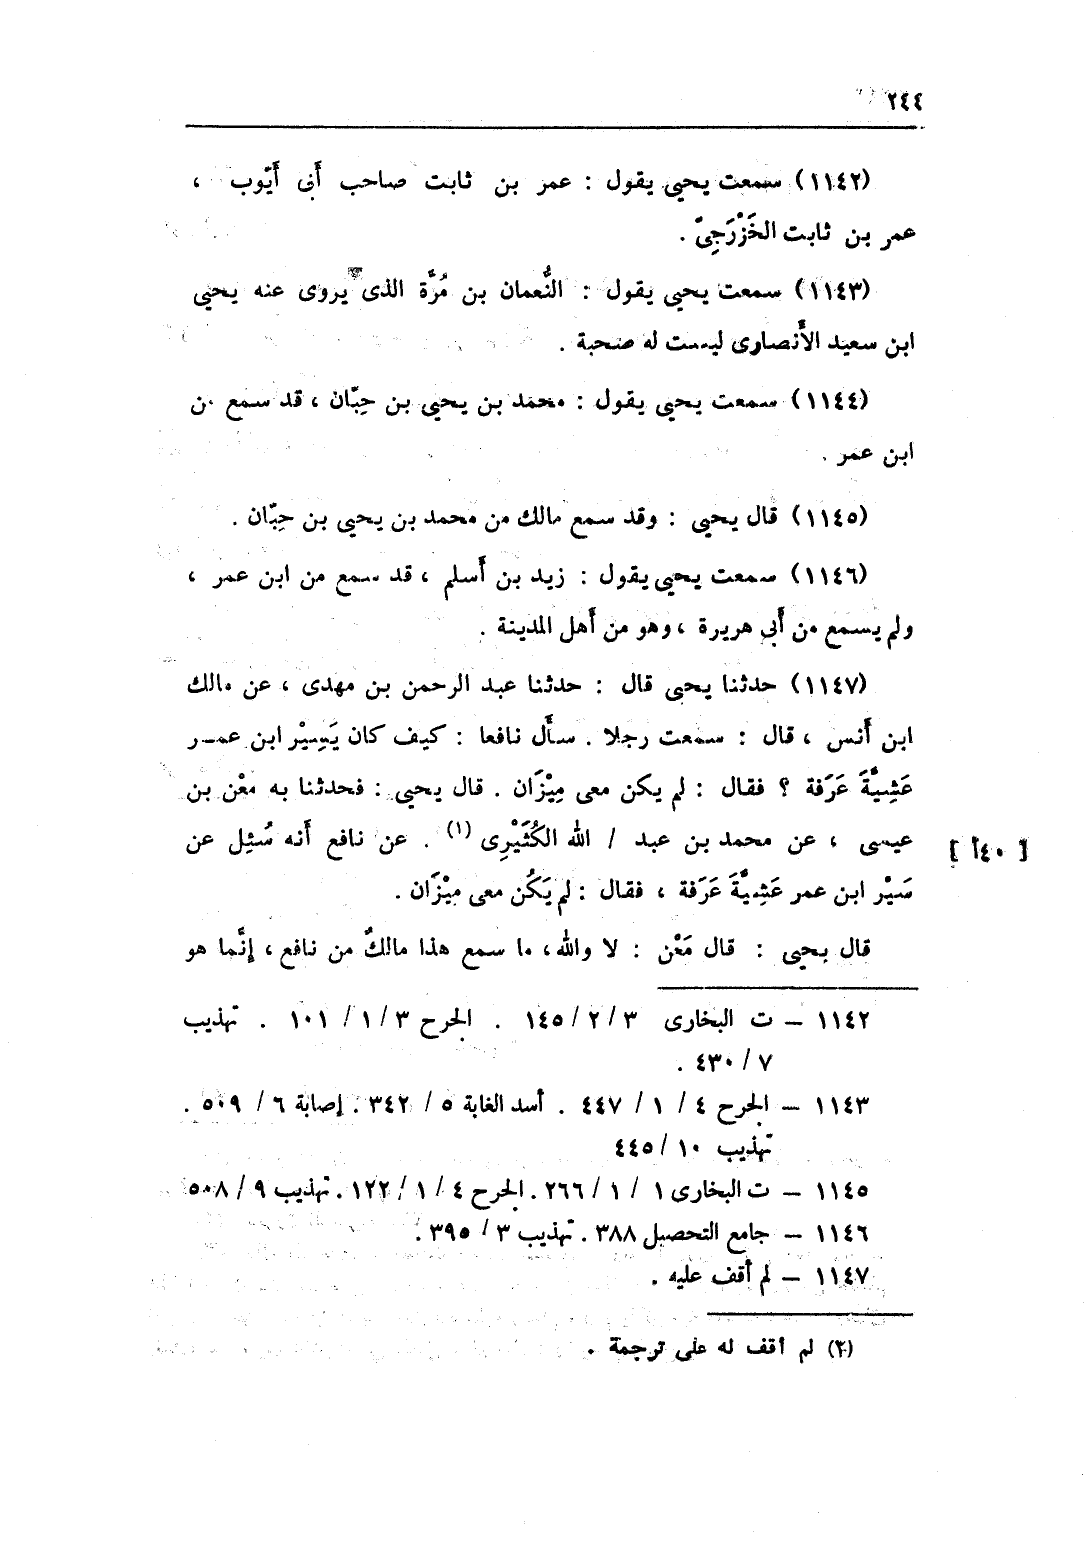 ٢٤٤
(١١٤٢) سمعت يحيى يقول : عمر بن ثابت صاحب أَبى أَيّوب ،
عمر بن ثابت الخَزْرَجِىّ .
(١١٤٣) سمعت يحيى يقول : النُّعمان بن مُرَّة الذى يروى عنه يحيى
ابن سعيد الأَنصارى ليست له صحبة .
(١١٤٤) سمعت يحيى يقول : محمد بن يحيى بن حِبّان ، قد سمع من
ابن عمر .
(١١٤٥) قال يحيى : وقد سمع مالك من محمد بن يحيى بن حِبّان .
(١١٤٦) سمعت يحيى يقول : زيد بن أَسلم ، قد سمع من ابن عمر ،
ولم يسمع من أَبى هريرة ، وهو من أَهل المدينة .
(١١٤٧) حدثنا يحيى قال : حدثنا عبد الرحمن بن مهدى ، عن مالك
ابن أَنس ، قال : سمعت رجلا . سأَل نافعا : كيف كان يَسِيْر ابن عمـر
عَشِيَّةَ عَرَفة ؟ فقال : لم يكن معى مِيْزَان . قال يحيى : فحدثنا به معْن بن
عيسى ، عن محمد بن عبد / الله الكُثَيْرِى (١) . عن نافع أَنه سُئِل عن
سَيْر ابن عمر عَشِيَّةَ عَرَفة ، فقال : لم يَكُن معى مِيْزَان .
[ ٤٠أ ]
قال يحيى : قال مَعْن : لا والله ، ما سمع هذا مالكٌ من نافع ، إِنَّما هو
١١٤٢ – ت البخارى ٣ / ٢ / ١٤٥ . الجرح ٣ / ١ / ١٠١ . تهذيب
٧ / ٤٣٠ .
١١٤٣ – الجرح ٤ / ١ / ٤٤٧ . أسد الغابة ٥ / ٣٤٢ . إصابة ٦ / ٥٠٩ .
تهذيب ١٠ / ٤٤٥
١١٤٥ – ت البخارى ١ / ١ / ٢٦٦ . الجرح ٤ / ١ / ١٢٢ . تهذيب ٩ / ٥٠٨
١١٤٦ – جامع التحصيل ٣٨٨ . تهذيب ٣ / ٣٩٥ .
١١٤٧ – لم أقف عليه .
(٢) لم أقف له على ترجمة .